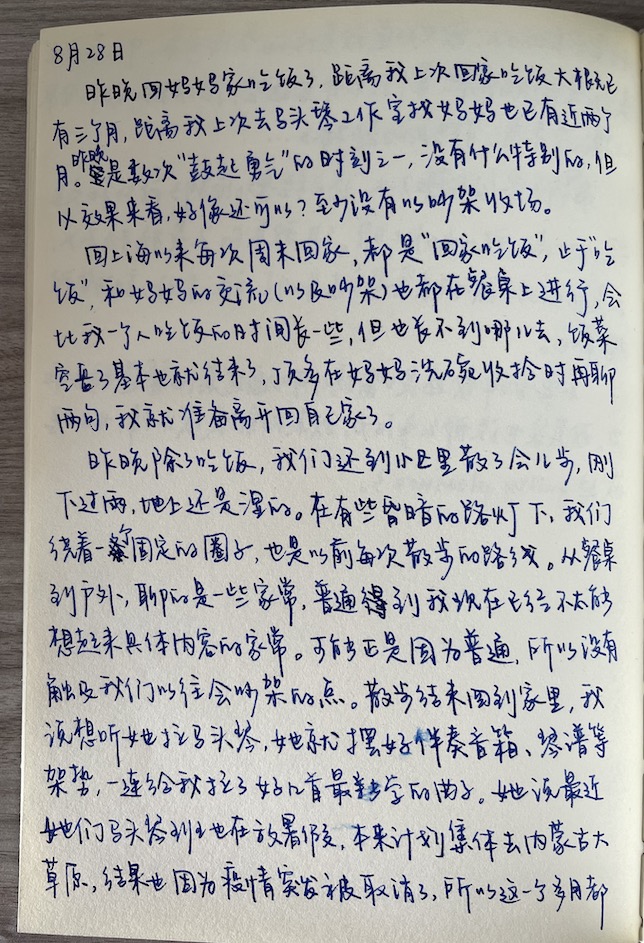 8月28日
昨晚回妈妈家吃饭了，距离我上次回家吃饭大概已
有三个月，距离我上次去马头琴工作室找妈妈也已有近两个
月。昨晚是数次“鼓起勇气”的时刻之一，没有什么特别的，但
从效果来看，好像还可以？至少没有以吵架收场。
回上海以来每次周末回家，都是“回家吃饭”，止于“吃
饭”，和妈妈的交流（以及吵架）也都在餐桌上进行，会
比我一个人吃饭的时间长一些，但也长不到哪儿去，饭菜
空盘了基本也就结束了，顶多在妈妈洗碗收拾时再聊
两句，我就准备离开回自己家了。
昨晚除了吃饭，我们还到小区里散了会儿步，刚
下过雨，地上还是湿的。在有些昏暗的路灯下，我们
绕着一个固定的圈子，也是以前每次散步的路线。从餐桌
到户外，聊的是一些家常，普通得到我现在已经不太能
想起来具体内容的家常。可能正是因为普通，所以没有
触及我们以往会吵架的点。散步结束回到家里，我
说想听她拉马头琴，她就摆好伴奏音箱、琴谱等
架势，一连给我拉了好几首最新学的曲子。她说最近
她们马头琴班也在放暑假，本来计划集体去内蒙古大
草原，结果也因为疫情突发被取消了，所以这一个多月都